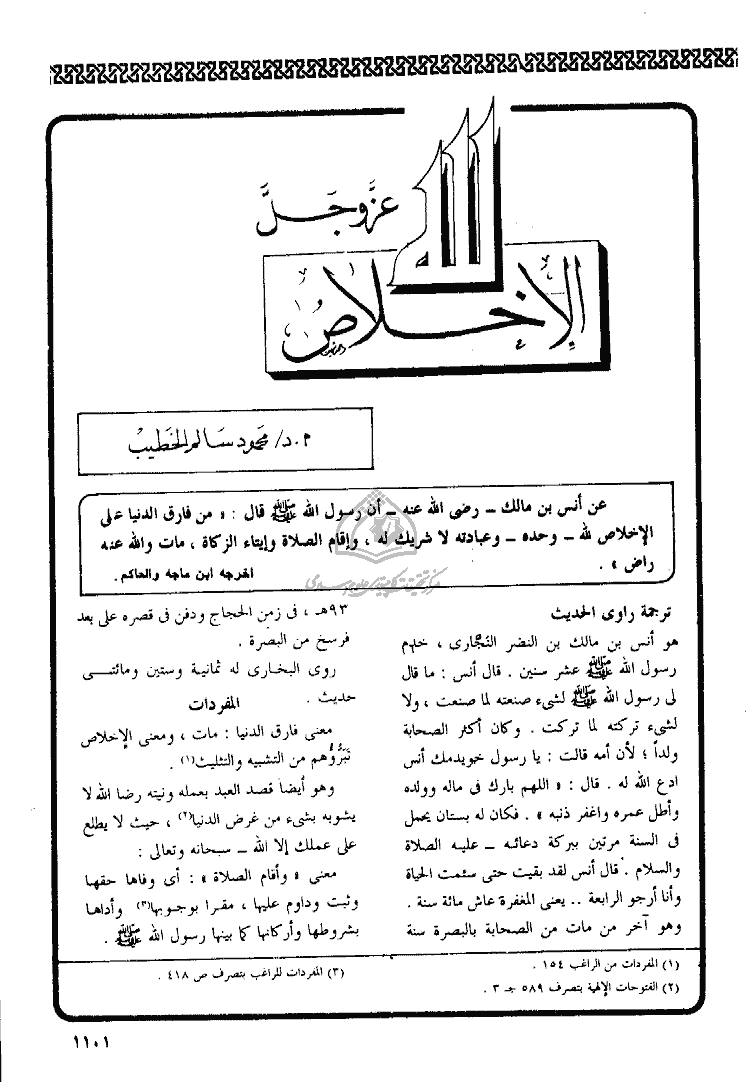 الله
عزَّ وجَلَّ
الإخلاص
م.د/ محمود سالم الخطيب
عن أنس بن مالك ــ رضى الله عنه ــ أن رسول الله ﷺ قال : « من فارق الدنيا على
الإخلاص لله ــ وحده ــ وعبادته لا شريك له ، وإقام الصلاة وإيتاء الزكاة ، مات والله عنه
راض » .
اخرجه ابن ماجه والحاكم .
ترجمة راوى الحديث
هو أنس بن مالك بن النضر النجارى ، خادم
رسول الله ﷺ عشر سنين . قال أنس : ما قال
لى رسول الله ﷺ لشىء صنعته لما صنعت ، ولا
لشىء تركته لما تركت . وكان أكثر الصحابة
ولداً ؛ لأن أمه قالت : يا رسول خويدمك أنس
ادع الله له . قال : « اللهم بارك فى ماله وولده
وأطل عمره واغفر ذنبه » . فكان له بستان يحمل
فى السنة مرتين ببركة دعائه ــ عليه الصلاة
والسلام . قال أنس لقد بقيت حتى سئمت الحياة
وأنا أرجو الرابعة .. يعنى المغفرة عاش مائة سنة .
وهو آخر من مات من الصحابة بالبصرة سنة
٩٣هـ ، فى زمن الحجاج ودفن فى قصره على بعد
فرسخ من البصرة .
روى البخارى له ثمانية وستين ومائتــى
حديث .
المفردات
معنى فارق الدنيا : مات ، ومعنى الإخلاص
تَبَرُّؤُهم من التشبيه والتثليث(١) .
وهو أيضا قصد العبد بعمله ونيته رضا الله لا
يشوبه بشىء من غرض الدنيا(٢) ، حيث لا يطلع
على عملك إلا الله ــ سبحانه وتعالى :
معنى « وأقام الصلاة » : أى وفاها حقها
وثبت وداوم عليها ، مقرا بوجوبها(٣) وأداها
بشروطها وأركانها كما بينها رسول الله ﷺ .
(١) المفردات من الراغب ١٥٤ .
(٢) الفتوحات الإلهية بتصرف ٥٨٩ جـ ٣ .
(٣) المفردات للراغب بتصرف ص ٤١٨ .
١١٠١